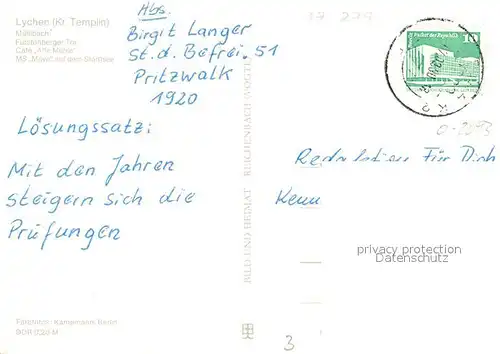 Lychen (Kr. Templin)
Mühlbach
Fürstenberger Tor
Café "Alte Mühle"
MS "Möwe" auf dem Stadtsee
Abs.
Birgit Langer
St. d. Befrei. 51
Pritzwalk
1920
Lösungssatz:
Mit den Jahren
steigern sich die
Prüfungen
BILD UND HEIMAT REICHENBACH (VOGTL)
Palast der Republik
10
Für Dich
Kenn
privacy protection
Datenschutz
3